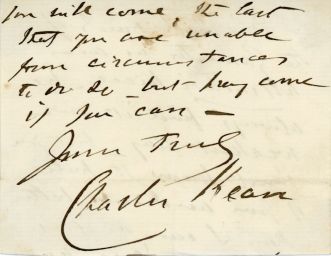 you will come, the last
that you are unable
from circumstances
to do so - but pray come
if you can -
Yours Truly
Charles Kean